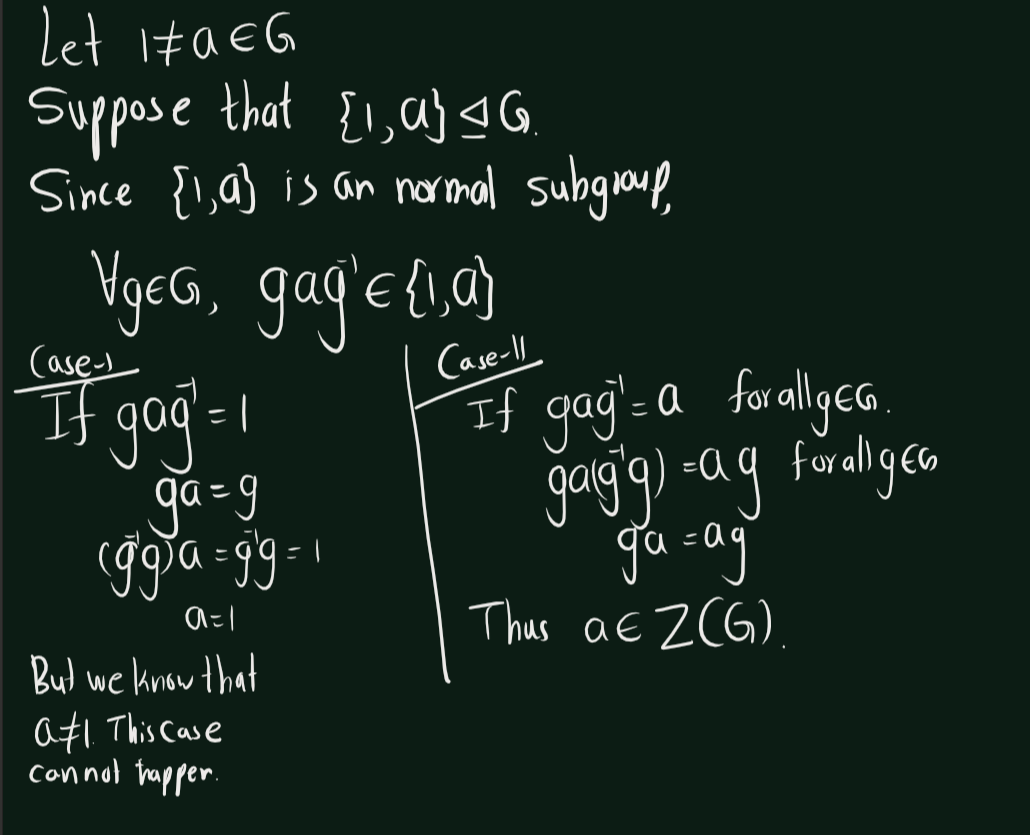 Let 1≠a∈G
Suppose that {1,a}⊴G.
Since {1,a} is an normal subgroup,
∀g∈G, gag⁻¹∈{1,a}
Case-I
If gag⁻¹=1
ga=g
(g⁻¹g)a=g⁻¹g=1
a=1
But we know that
a≠1. This case
cannot happen.
Case-II
If gag⁻¹=a for all g∈G.
ga(g⁻¹g)=ag for all g∈G
ga=ag
Thus a∈Z(G).